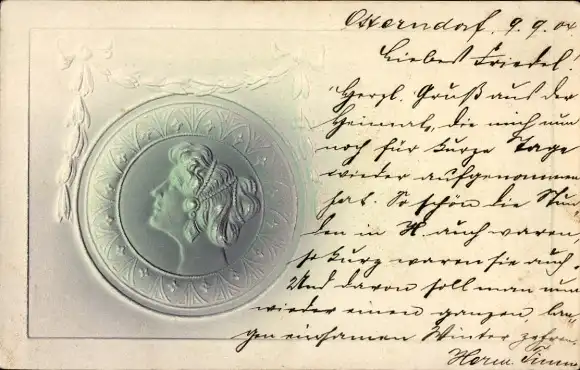 Otterndorf, 9.9.04
Liebes Friedel!
Herzl. Gruß aus der
Heimat, die mich nun
noch für kurze Tage
wieder aufgenommen
hat. So schön die Stun
den in H. auch waren
so kurz waren sie auch.
Und davon soll man nun
wieder einen ganzen, lan
gen einsamen Winter
Herm.